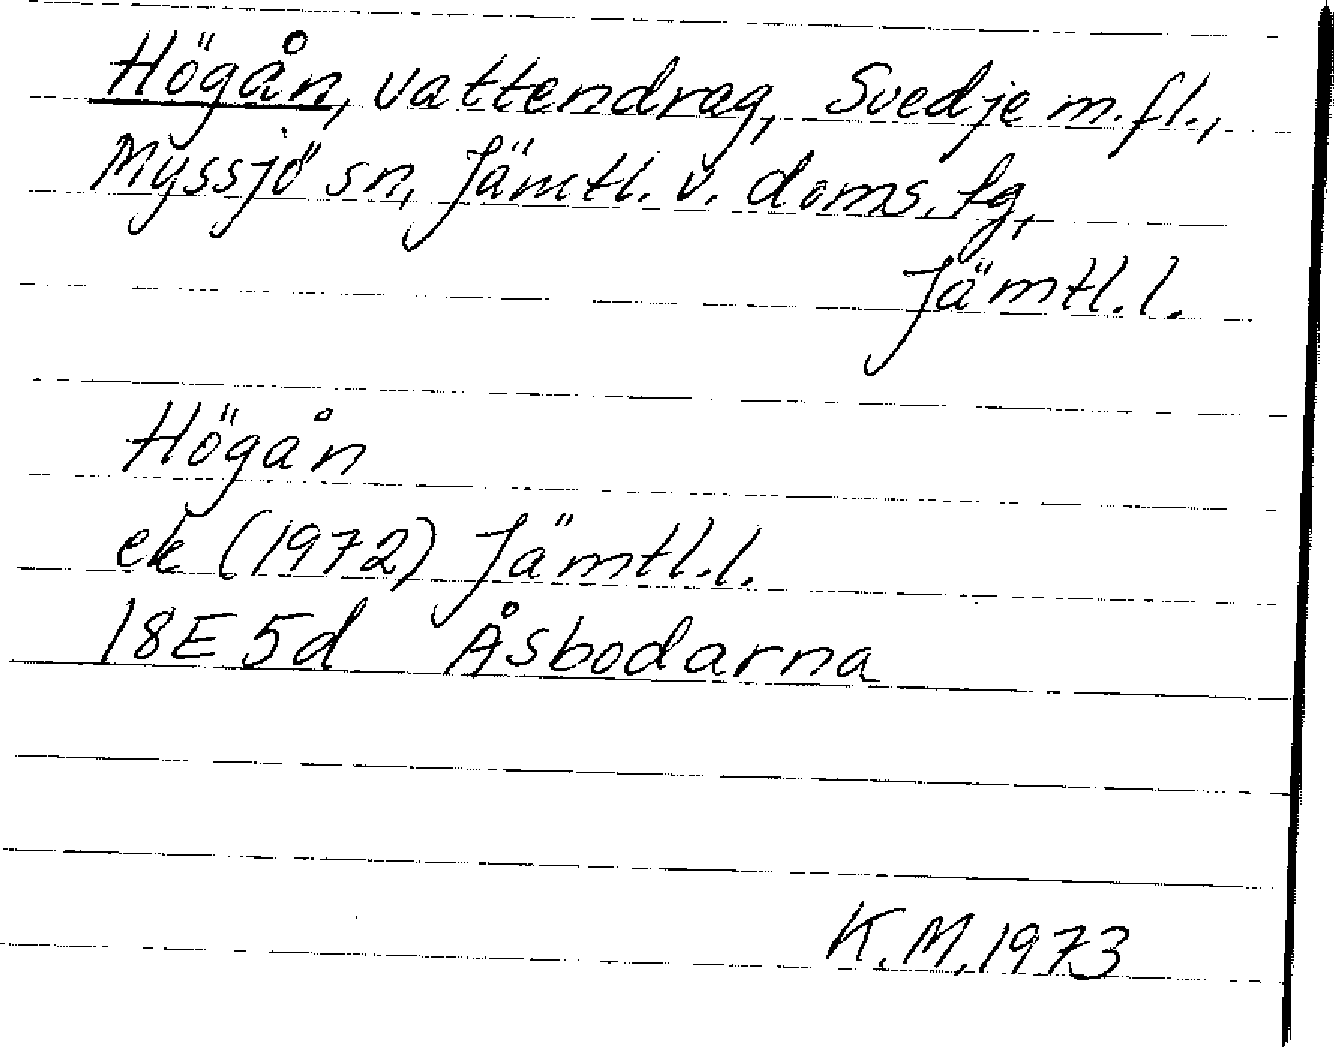 Högån, vattendrag, Svedje m.fl.,
Myssjö sn, Jämtl. v. doms. tg,
Jämtl. l.
Högån
ek (1972) Jämtl. l.
18E 5d Åsbodarna
K.M. 1973